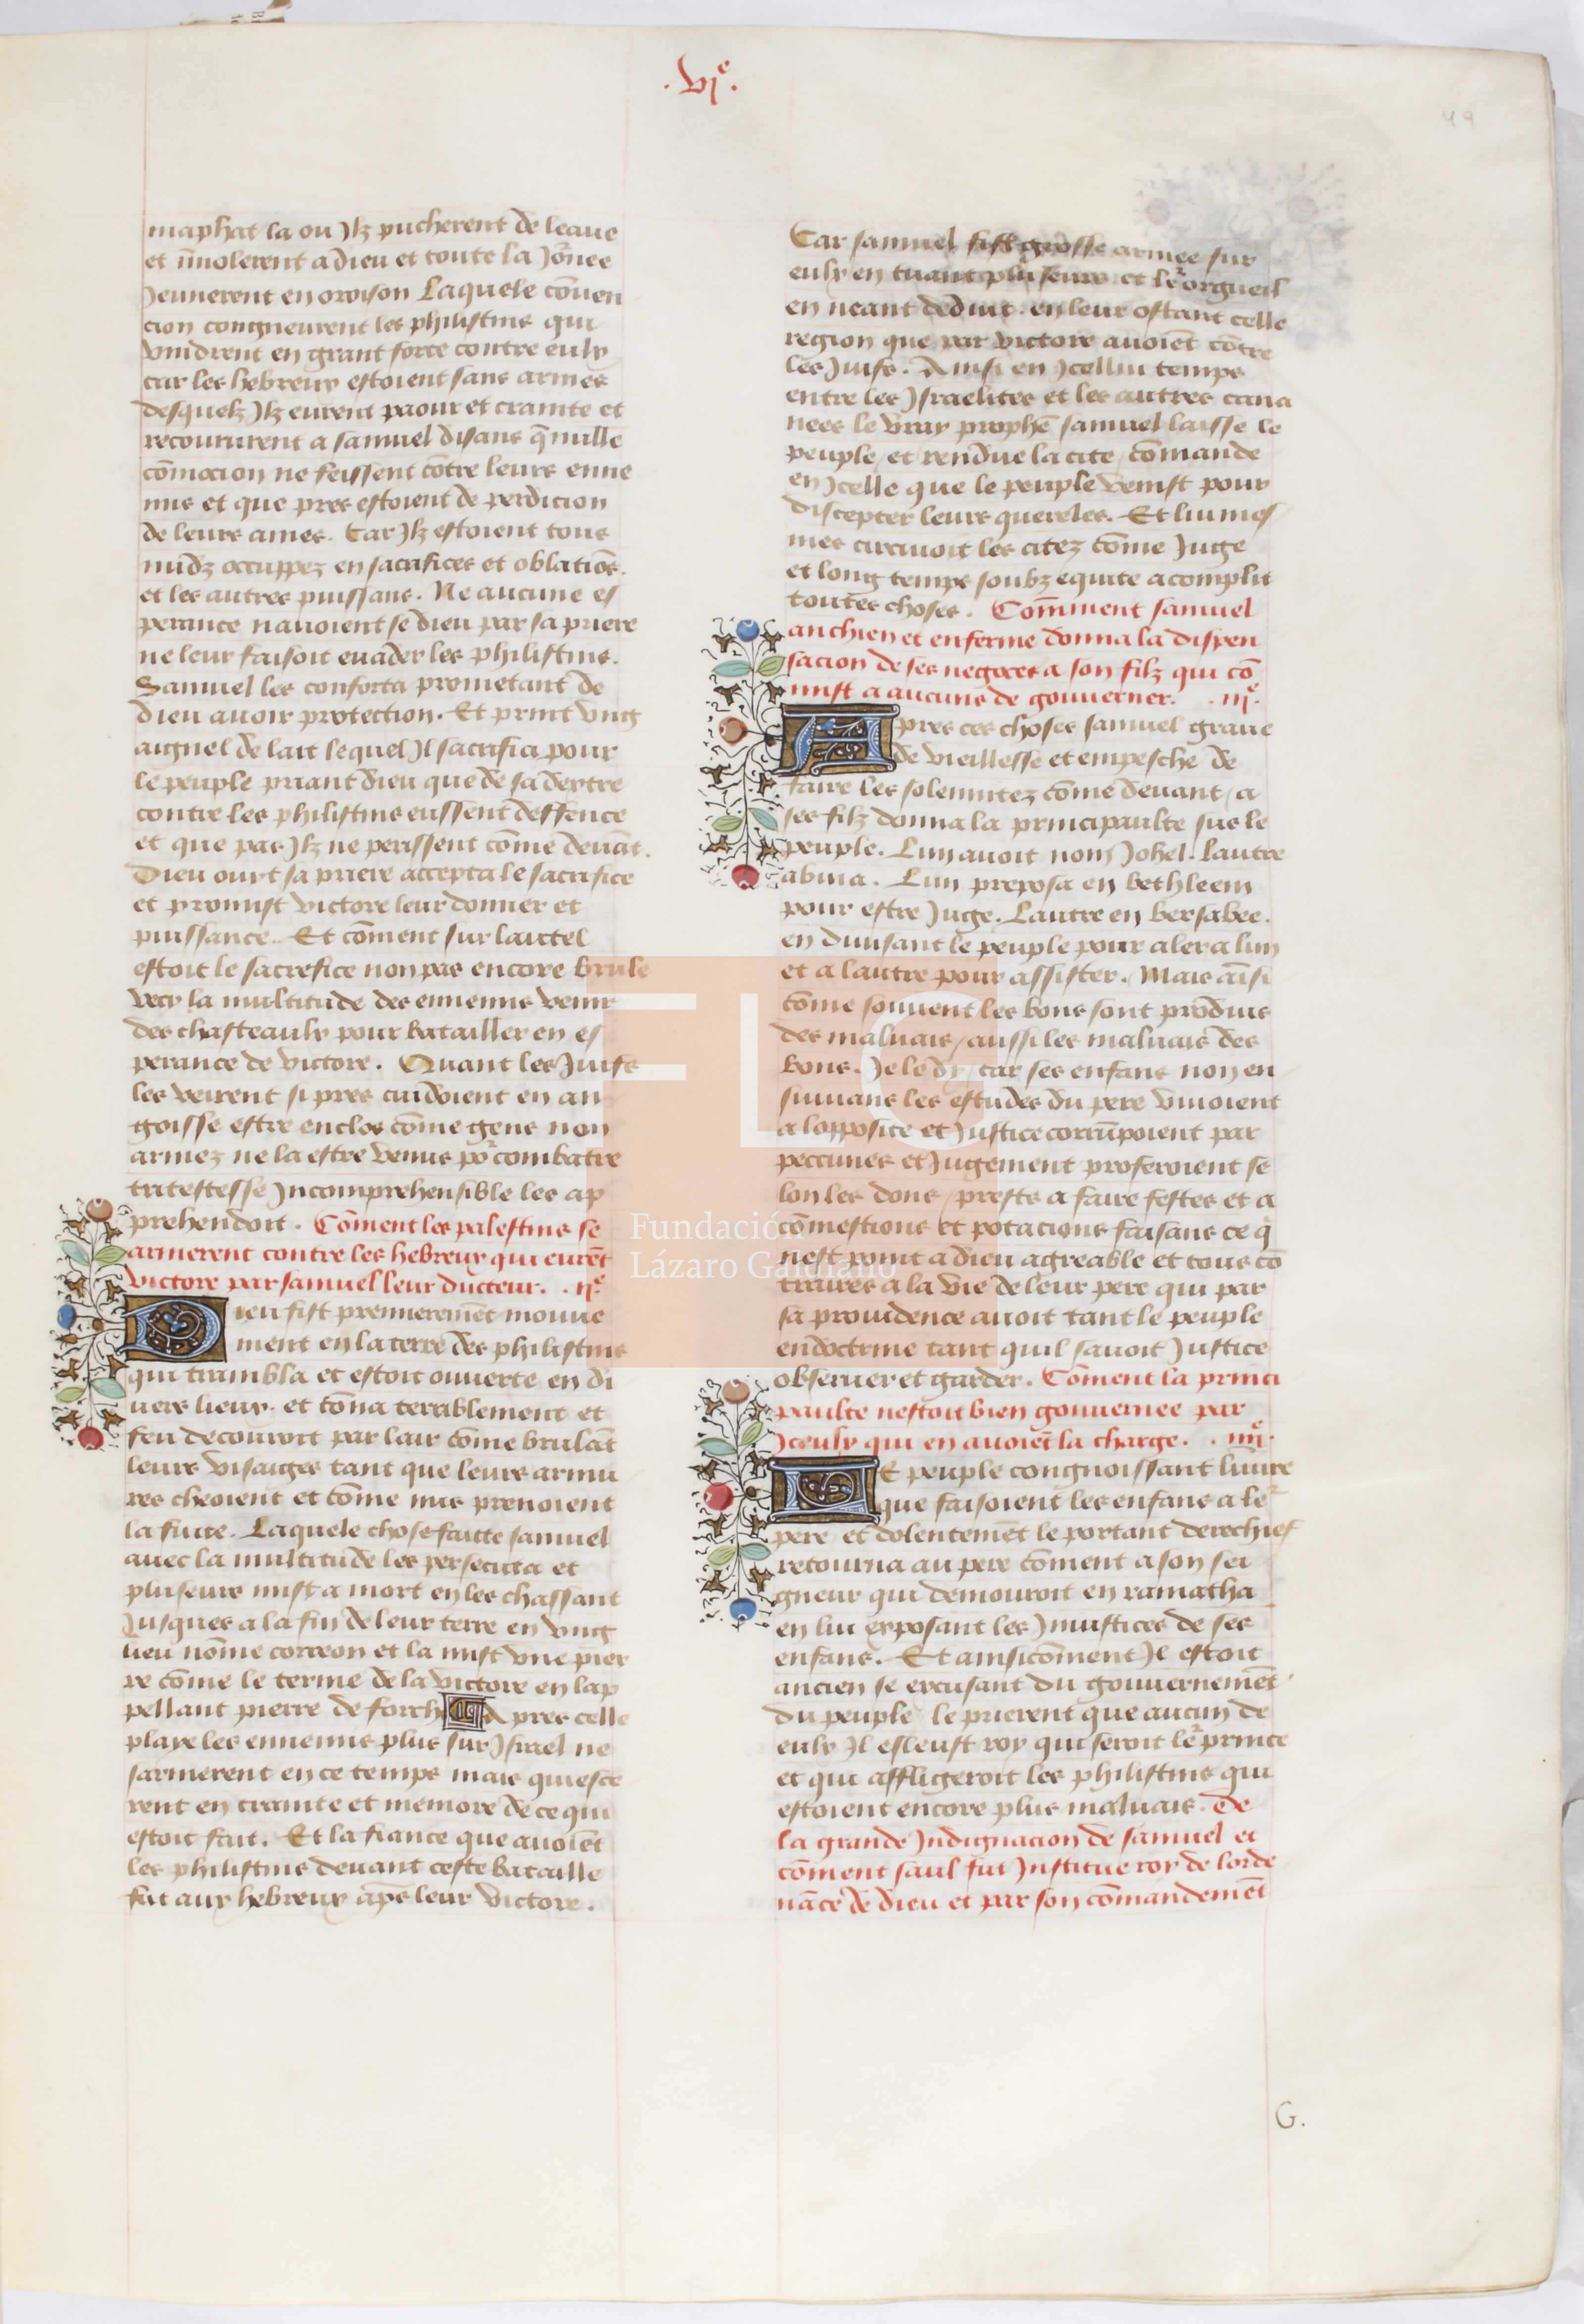 .vjᵉ.
49
maphat la ou Jlz pucherent de leaue
et īmolerent a dieu et toute la Jōnee
Jeunerent en oroison Laquele cōuen
cion congneurent les philistins qui
vindrent en grant force contre eulx
car les hebreux estoient sans armes
desquelz Jlz eurent paour et crainte et
recoururent a samuel disans q̄ nulle
cōmocion ne feissent cōtre leurs enne
mis et que pres estoient de perdicion
de leurs ames. Car Jlz estoient tous
nudz occuppez en sacrifices et oblatiōs.
et les autres puissans. Ne aucune es
perance nauoient se dieu par sa priere
ne leur faisoit euader les philistins.
Samuel les conforta prometant de
dieu auoir protection. Et print vng
aignel de lait lequel Jl sacrifia pour
le peuple priant dieu que de sa dextre
contre les philistins eussent deffence
et que par Jlz ne perissent cōme deuāt.
Dieu ouyt sa priere accepta le sacrifice
et promist victore leur donner et
puissance. Et cōment sur lautel
estoit le sacrefice non pas encore brule
vecy la multitude des ennemis venir
des chasteaulx pour batailler en es
perance de victore. Quant les Juifs
les veirent si pres cuidoient en an
goisse estre enclos cōme gens non
armez ne la estre venus por̄ combatre
tritestesse Jncomprehensible les ap
prehendoit. Cōment les palestins se
armerent contre les hebreux qui eurēt
victore par samuel leur ducteur. .ijᵉ.
Dieu fist premieremēt mouue
ment en la terre des philistins
qui trambla et estoit ouuerte en di
uers lieux. et tōna terriblement et
feu decouroit par lair cōme brulāt
leurs visaiges tant que leurs armu
res cheoient et cōme nus prenoient
la fuite. Laquele chose faitte samuel
auec la multitude les persecuta et
pluseurs mist a mort en les chassant
Jusques a la fin de leur terre en vng
lieu nōme correon et la mist vne pier
re cōme le terme de la victore en lap
pellant pierre de forche Apres celle
playe les ennemis plus sur Jsrael ne
sarmerent en ce temps mais quiesce
rent en crainte et memore de ce qui
estoit fait. Et la fiance que auoiēt
les philistins deuant ceste bataille
fut aux hebreux apēs leur victore.
Car samuel fist grosse armee sur
eulx en tuant pluseurs et le᷑ orgueil
en neant deduit. en leur ostant celle
region que par victore auoiēt cōtre
les Juifs. Ainsi en Jcellui temps
entre les Jsraelites et les autres cana
nees le vray prophē samuel laisse le
peuple / et rendue la cite / cōmande
en Jcelle que le peuple venist pour
discepter leurs quereles. Et lui mes
mes circuuoit les citez cōme Juge
et long temps soubz equite acomplit
toutes choses. Cōmment samuel
anchien et enferme donna la dispen
sacion de ses negoces a son filz qui cō
mist a aucuns de gouuerner. .iijᵉ.
Apres ces choses samuel graue
de vieillesse et empesche de
faire les solemnitez cōme deuant / a
ses filz donna la principaulte sus le
peuple. Lun auoit nom Johel. lautre
abiria. Lun preposa en bethleem
pour estre Juge. Lautre en bersabee.
en diuisant le peuple pour aler a lun
et a lautre pour assister. Mais aīsi
cōme souuent les bons sont produis
des maluais / aussi les maluais des
bons. Je le dy / car ses enfans non en
suiuans les estudes du pere viuoient
a lopposite et Justice corrūpoient par
peccunes et Jugement proferoient se
lon les dons / prests a faire festes et a
cōmestions et potacions faisans ce q̄
nest point a dieu agreable et tous cō
traires a la vie de leur pere qui par
sa prouidence auoit tant le peuple
endoctrine tant quil sauoit Justice
obseruer et garder. Cōment la princi
paulte nestoit bien gouuernee par
Jceulx qui en auoiēt la charge. .iiijᵉ.
Le peuple congnoissant liniure
que faisoient les enfans a le᷑
pere et dolentemēt le portant derechief
retourna au pere cōment a son sei
gneur qui demouroit en ramatha
en lui exposant les Jniustices de ses
enfans. Et ainsi cōment Jl estoit
ancien se excusant du gouuernemēt
du peuple le prierent que aucun de
eulx Jl esleust roy qui seroit le᷑ prince
et qui affligeroit les philistins qui
estoient encore plus maluais. De
la grande Jndignacion de samuel et
cōment saul fut Jnstitue roy de lorde
nāce de dieu et par son cōmandemēt
G.
FLG
Fundación
Lázaro Galdiano